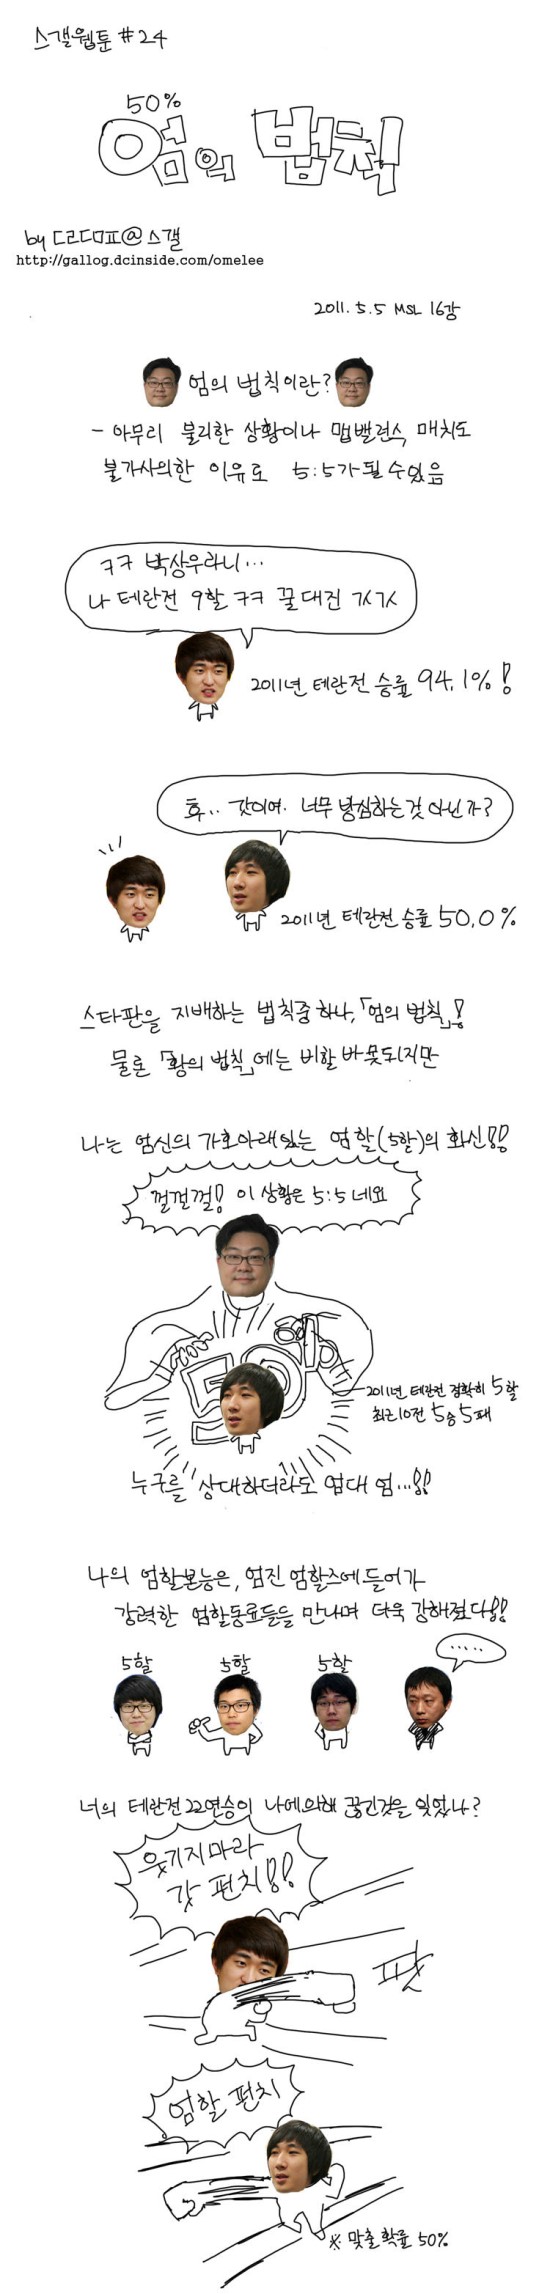 스갤웹툰 #24
50%
엄의 법칙
by 디리디디피@스갤
http://gallog.dcinside.com/omelee
2011.5.5 MSL 16강
엄의 법칙이란?
- 아무리 불리한 상황이나 맵밸런스 매치도
불가사의한 이유로 5:5가 될 수 있음
ㅋㅋ 박상우라니...
나 테란전 9할 ㅋㅋ 꿀대진 ㄳㄳ
2011년 테란전 승률 94.1%!
후.. 갓이여. 너무 방심하는것 아닌가?
2011년 테란전 승률 50.0%
스타판을 지배하는 법칙중 하나, 「엄의 법칙」!
물론 「황의 법칙」에는 비할 바 못되지만
나는 엄신의 가호아래있는 엄할(5할)의 화신!!
껄껄껄! 이 상황은 5:5 네요
50%
2011년 테란전 정확히 5할
최근10전 5승5패
누구를 상대하더라도 엄대엄...!!
나의 엄할본능은, 엄진 엄할즈에 들어가
강력한 엄할동료들을 만나며 더욱 강해졌다!!
5할 5할 5할
.....
너의 테란전 22연승이 나에의해 끊긴것을 잊었나?
웃기지마라
갓 펀치!!
팟
엄할 펀치
※ 맞출 확률 50%